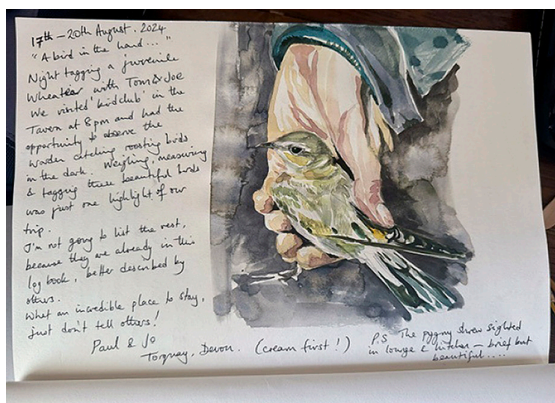 17th – 20th August. 2024
"A bird in the hand..."
Night tagging a juvenile
Wheatear with Tom & Joe
We visited 'birdclub' in the
Tavern at 8pm and had the
opportunity to observe the
Warden catching roosting birds
in the dark. Weighing, measuring
& tagging these beautiful birds
was just one highlight of our
trip.
I'm not going to list the rest,
because they are already in this
log book, better described by
others.
What an incredible place to stay,
just don't tell others!
Paul & Jo
Torquay, Devon. (cream first!)
P.S The pygmy shrew sighted
in lounge & kitchen – brief but
beautiful....